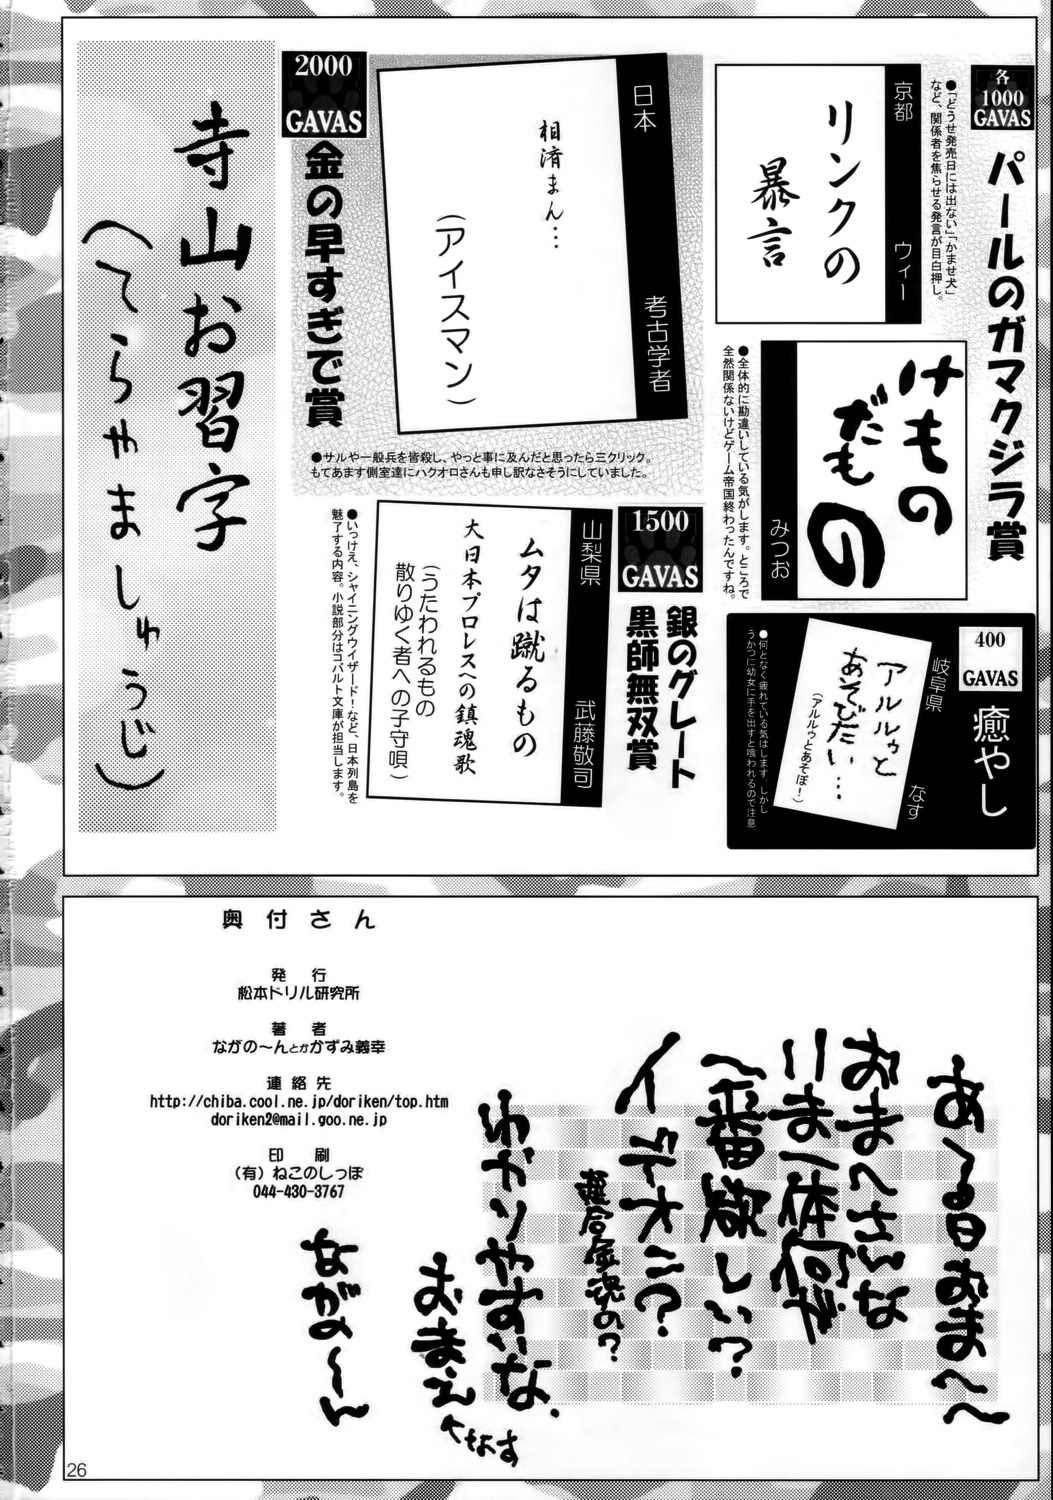 各
1000
GAVAS
パールのガマクジラ賞
京都 ウィー
リンクの
暴言
●「どうせ発売日には出ない」「かませ犬」
など、関係者を焦らせる発言が目白押し。
みつお
けもの
だもの
●全体的に勘違いしている気がします。ところで
全然関係ないけどゲーム帝国終わったんですね。
400
GAVAS
癒やし
岐阜県 なす
アルルゥと
あそびたい…
(アルルゥとあそぼ!)
●何となく疲れている気はします。しかし
うかつに幼女に手を出すと喰われるので注意
2000
GAVAS
金の早すぎで賞
日本 考古学者
相済まん…
(アイスマン)
●サルや一般兵を皆殺し、やっと事に及んだと思ったら三クリック。
もてあます側室達にハクオロさんも申し訳なさそうにしていました。
1500
GAVAS
銀のグレート
黒師無双賞
山梨県 武藤敬司
ムタは蹴るもの
大日本プロレスへの鎮魂歌
(うたわれるもの
散りゆく者への子守唄)
●いっけえ、シャイニングウィザード!など、日本列島を
魅了する内容。小説部分はコバルト文庫が担当します。
寺山お習字
(てらやましゅうじ)
奥付さん
発行
松本ドリル研究所
著者
ながの〜んとかかずみ義幸
連絡先
http://chiba.cool.ne.jp/doriken/top.htm
doriken2@mail.goo.ne.jp
印刷
(有)ねこのしっぽ
044-430-3767
ある日おまへ〜
おまへさいな
いま一体何が
一番欲しい?
イデオン?
超合金魂の?
わかりやすいな、
おまえ
へなす
ながの〜ん
26